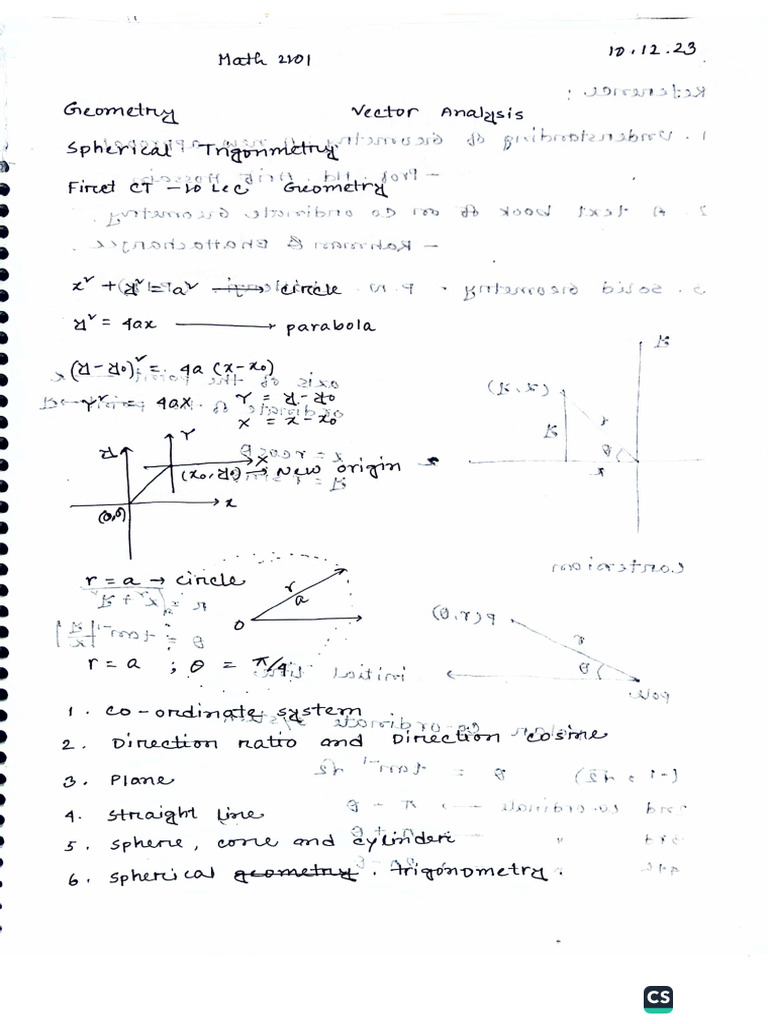 10.12.23
Math 2201
Geometry Vector Analysis
Spherical Trigonmetry
First CT - 10 Lec Geometry
x² + y² = a² → circle
y² = 4ax → parabola
(y-y₀)² = 4a (x-x₀)
Y² = 4aX Y = y-y₀
X = x-x₀
y Y
X
(x₀, y₀) → New origin
(0,0) x
r = a → circle r
a
O
r = a ; θ = π/4
1. Co-ordinate system
2. Direction ratio and Direction cosine
3. Plane
4. Straight Line
5. sphere, cone and cylinder
6. spherical geometry. trigonometry.
CS